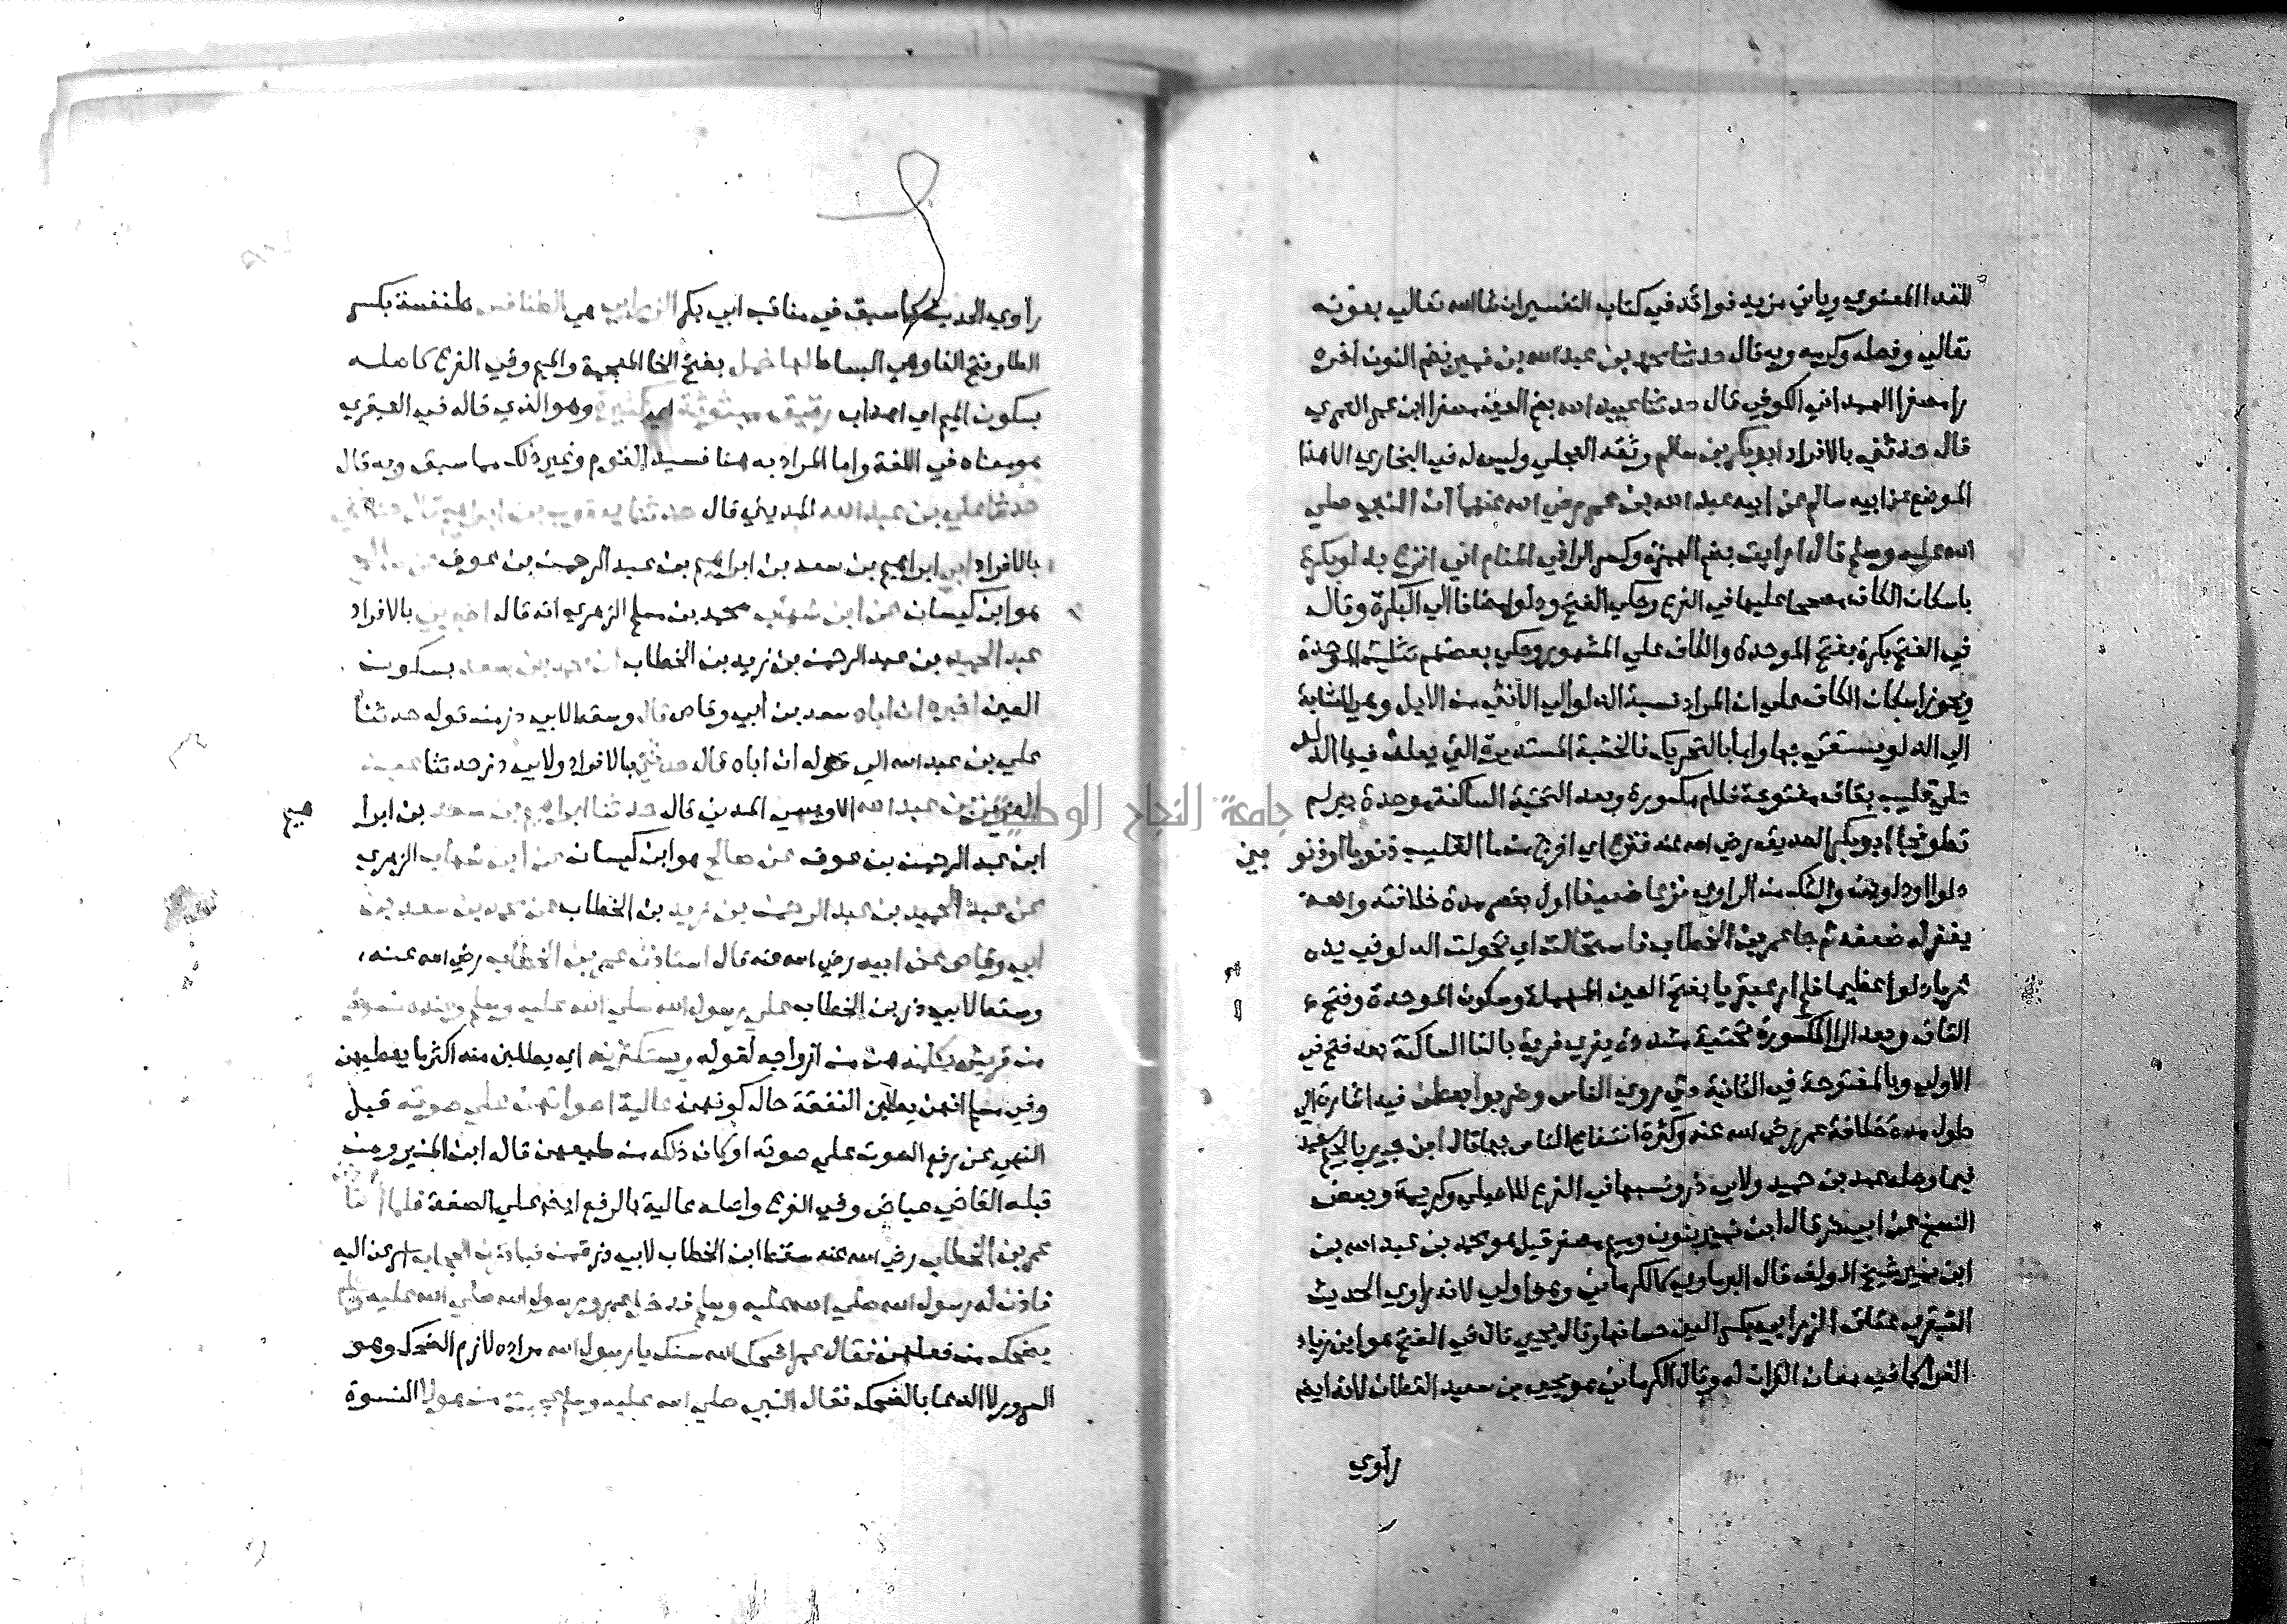 للفداء المعنوي وياتي مزيد فوائد في كتاب التفسير ان شا الله تعالي بعونه
تعالي وفضله وكرمه وبه قال حدثنا محمد بن عبد الله بن نمير بضم النون اخره
را مصغرا الهمداني الكوفي قال حدثنا عبيد الله بضم العين مصغرا ابن عمر العمري
قال حدثني بالافراد ابو بكر بن سالم وثقه العجلي وليس له في البخاري الا هذا
الموضع عن ابيه سالم عن ابيه عبد الله بن عمر رضي الله عنهما ان النبي صلي
الله عليه وسلم قال اريت بضم الهمزة وكسر الرا في المنام اني انزع بدلو بكرة
باسكان الكاف مصححا عليها في الفرع وحكي الفتح ودلو مضافا الي البكرة وقال
في الفتح بكرة بفتح الموحدة والكاف علي المشهور وحكي بعضهم تثليث الموحدة
ويجوز اسكان الكاف علي ان المراد نسبة الدلو الي الانثي من الابل وهي الشابة
الي الدلو يستقي بها واما بالتحريك فالخشبة المستديرة التي يعلق فيها الدلو
علي قليب بقاف مفتوحة فلام مكسورة وبعد التحتية الساكنة موحدة بير لم
تطو فجا ابو بكر الصديق رضي الله عنه فنزع اي اخرج من ما القليب ذنوبا او ذنوبين
دلوا او دلوين والشك من الراوي نزعا ضعيفا اول بقصر مدة خلافته والله
يغفر له ضعفه ثم جا عمر بن الخطاب فاستحالت اي تحولت الدلو في يده
غربا دلوا عظيما فلم ار عبقريا بفتح العين المهملة وسكون الموحدة وفتح
القاف وبعد الرا المكسورة تحتية مشددة يفري فرية بالفا الساكنة بعد فتح في
الاولي وبالمفتوحة في الثانية حتي روي الناس وضربوا بعطن فيه اشارة الي
طول مدة خلافة عمر رضي الله عنه وكثرة انتفاع الناس بها قال ابن جبير بالجيم سعيد
فيما وصله عبد بن حميد ولابي ذر ونسبها في الفرع للاصيلي وكريمة وبعض
النسخ عن ابي ذر قال ابن نمير بنون وميم مصغر قيل هو محمد بن عبد الله بن
ابن نمير شيخ المولف قال البرماوي كالكرماني وهو اولي لانه راوي الحديث
العبقري عتاق الزرابي بكسر العين حسانها وقال يحيي قال في الفتح هو ابن زياد
الفرا كما في معاني القران له وقال الكرماني هو يحيي بن سعيد القطان لانه ايضا
راوي
راوي الحديث كما سبق في مناقب ابي بكر الزرابي هي الطنافس طنفسة بكسر
الطا وفتح الفا وهي البساط لها خمل بفتح الخا المعجمة والميم وفي الفرع كاصله
بسكون الميم اي اهداب رقيق مبثوثة اي كثيرة وهو الذي قاله في العبقري
هو معناه في اللغة واما المراد به هنا فسيد القوم وغير ذلك مما سبق وبه قال
حدثنا علي بن عبد الله المديني قال حدثنا يعقوب بن ابراهيم قال حدثني
بالافراد ابي ابراهيم بن سعد بن ابراهيم بن عبد الرحمن بن عوف عن صالح
هو ابن كيسان عن ابن شهاب محمد بن مسلم الزهري انه قال اخبرني بالافراد
عبد الحميد بن عبد الرحمن بن زيد بن الخطاب ان محمد بن سعد بسكون
العين اخبره ان اباه سعد بن أبي وقاص قال وسقط لابي ذر من قوله حدثنا
علي بن عبد الله الي قوله ان اباه قال حدثني بالافراد ولابي ذر حدثنا عبد
العزيز بن عبد الله الاويسي المدني قال حدثنا ابراهيم بن سعد بن ابراهيم
ابن عبد الرحمن بن عوف عن صالح هو ابن كيسان عن ابن شهاب الزهري
عن عبد الحميد بن عبد الرحمن بن زيد بن الخطاب عن محمد بن سعد بن
ابي وقاص عن ابيه رضي الله عنه قال استاذن عمر بن الخطاب رضي الله عنه
وسقط لابي ذر بن الخطاب علي رسول الله صلي الله عليه وسلم وعنده نسوة
من قريش يكلمنه هن من ازواجه لقوله ويستكثرنه اي يطلبن منه اكثر ما يعطيهن
وفي مسلم انهن يطلبن النفقة حال كونهن عالية اصواتهن علي صوته قبل
النهي عن رفع الصوت علي صوته او كان ذلك من طبعهن قاله ابن المنير ومن
قبله القاضي عياض وفي الفرع واصله عالية بالرفع ايضا علي الصفة فلما استاذن
عمر بن الخطاب رضي الله عنه سقط ابن الخطاب لابي ذر قمن فبادرن الحجاب اسرعن اليه
فاذن له رسول الله صلي الله عليه وسلم فدخل عمر ورسول الله صلي الله عليه وسلم
يضحك من فعلهن فقال عمر اضحك الله سنك يا رسول الله مراده لازم الضحك وهو
السرور لا الدعا بالضحك فقال النبي صلي الله عليه وسلم عجبت من هولا النسوة
جامعة النجاح الوطنية